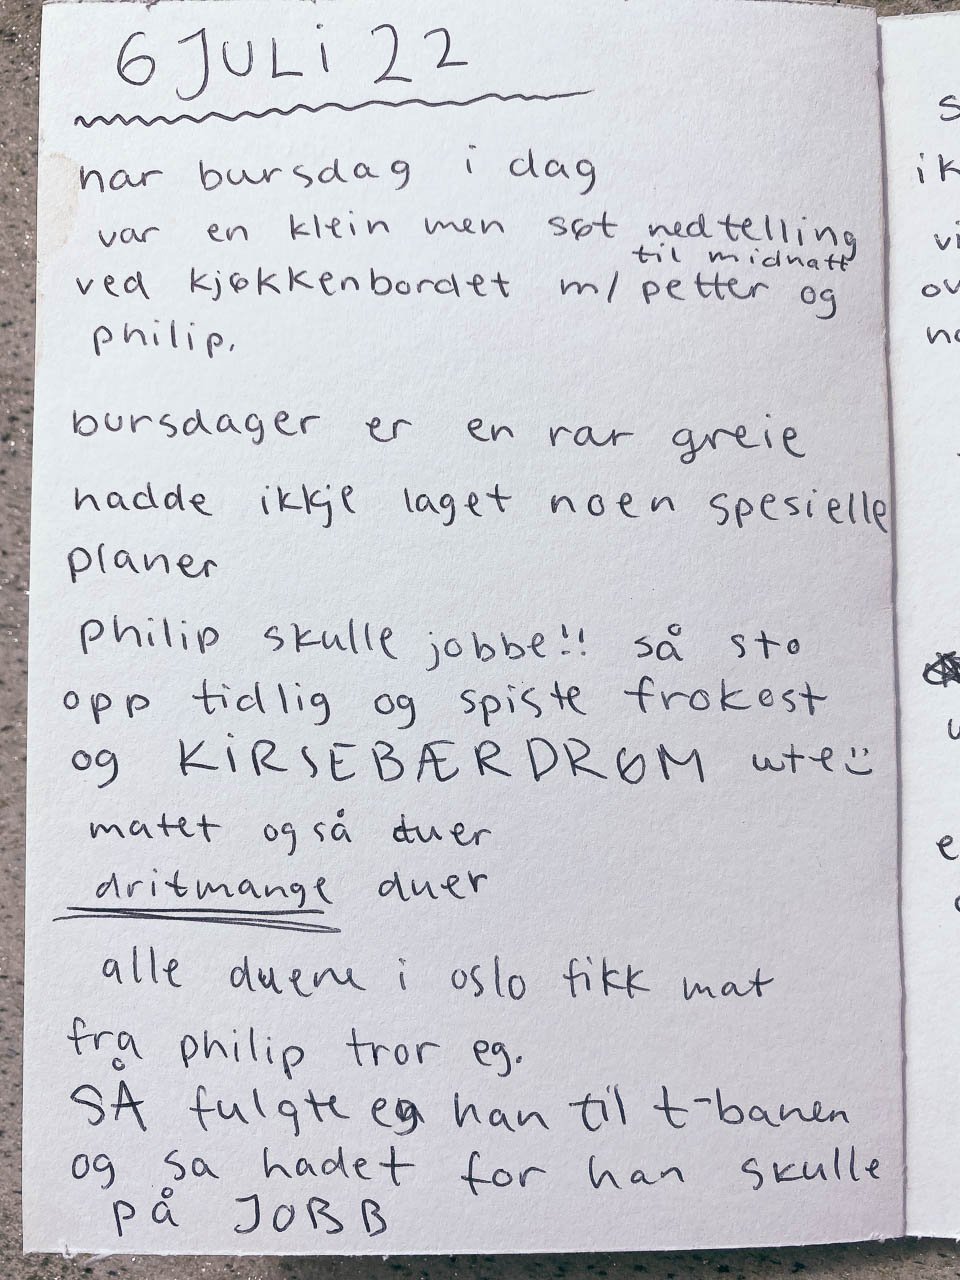 6 JULI 22
har bursdag i dag
var en klein men søt nedtelling
til midnatt
ved kjøkkenbordet m/ petter og
philip.
bursdager er en rar greie
hadde ikkje laget noen spesielle
planer
philip skulle jobbe!! så sto
opp tidlig og spiste frokost
og KIRSEBÆRDRØM ute :)
matet også duer
dritmange duer
alle duene i oslo fikk mat
fra philip tror eg.
SÅ fulgte eg han til t-banen
og sa hadet for han skulle
på JOBB